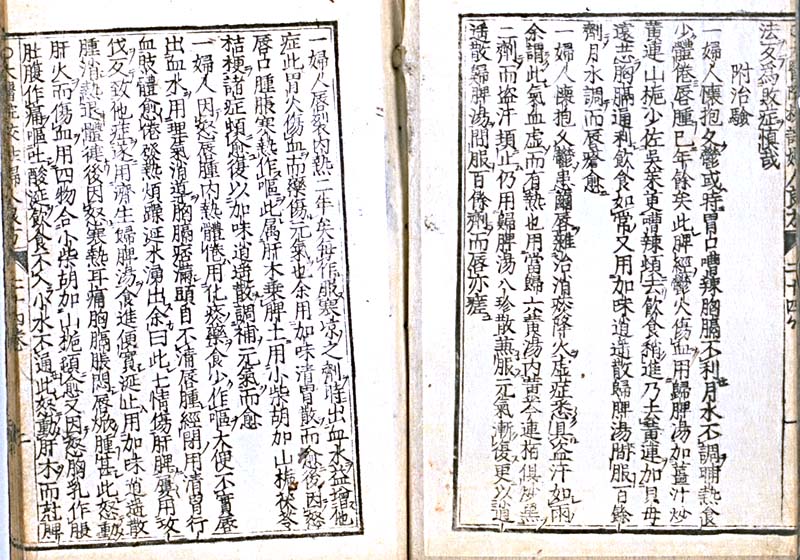 法反為敗症慎哉
附治驗
一婦人懷抱久鬱或時胃口嘈辣胸膈不利月水不調晡熱食
少體倦唇腫已年餘矣此脾經鬱火傷血用歸脾湯加薑汁炒
黃連山梔少佐吳茱萸嘈辣頓去飲食稍進乃去黃連加貝母
遠志胸膈通利飲食如常又用加味逍遙散歸脾湯間服百餘
劑月水調而唇瘡愈
一婦人懷抱久鬱患繭唇雜治消痰降火虛症悉具盜汗如雨
余謂此氣血虛而有熱也用當歸六黃湯內黃芩連柏俱炒黑
二劑而盜汗頓止仍用歸脾湯八珍散兼服元氣漸復更以逍
遙散歸脾湯間服百餘劑而唇亦瘥
一婦人唇裂內熱二年矣每作服寒涼之劑唇出血水益增他
症此胃火傷血而藥傷元氣也余用加味清胃散而愈後因怒
唇口腫脹寒熱作嘔此屬肝木乘脾土用小柴胡加山梔茯苓
桔梗諸症頓愈復以加味逍遙散調補元氣而愈
一婦人因怒唇腫內熱體倦用化痰藥食少作嘔大便不實唇
出血水用理氣消導胸膈痞滿頭目不清唇腫經閉用清胃行
血肢體愈倦發熱煩躁涎水湧出余曰此七情傷肝脾屢用攻
伐反致他症遂用濟生歸脾湯食進便實涎止用加味逍遙散
腫消熱退體健後因怒寒熱耳痛胸膈脹悶唇焮腫甚此怒動
肝火而傷血用四物合小柴胡加山梔頓愈又因怒胸乳作脹
肚腹作痛嘔吐酸涎飲食不入小水不通此怒動肝木而尅脾